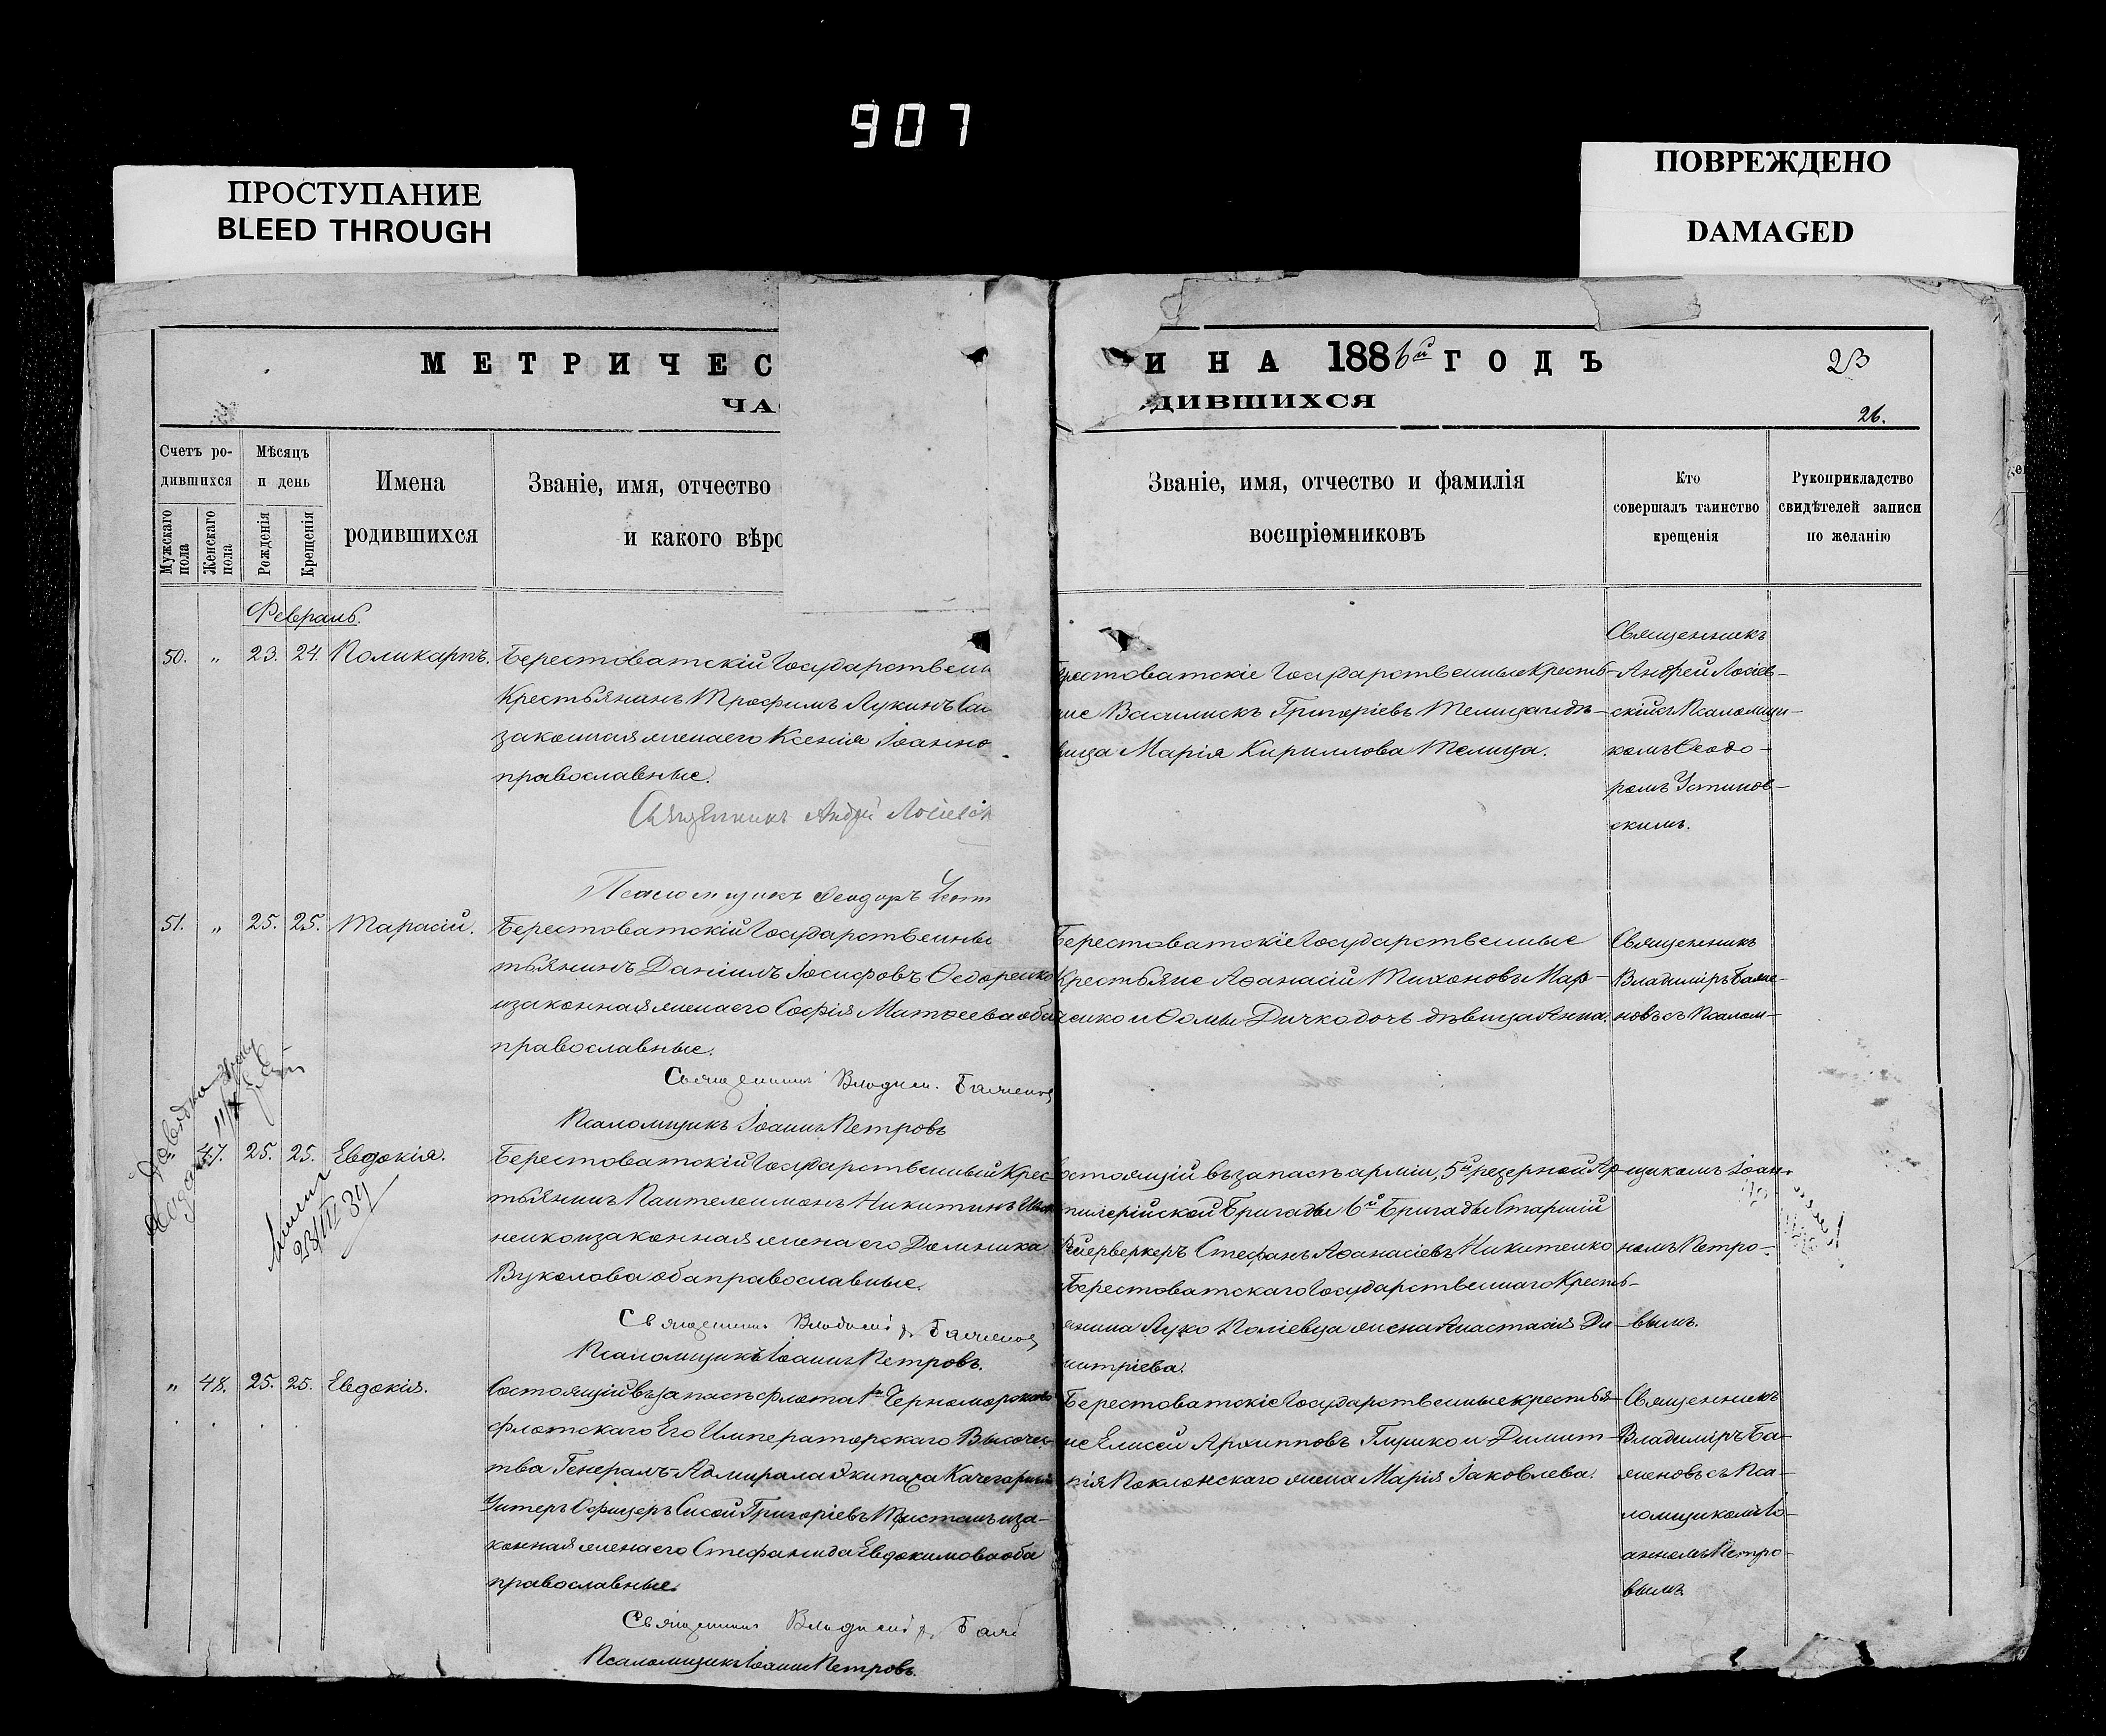 907
ПРОСТУПАНИЕ
BLEED THROUGH
ПОВРЕЖДЕНО
DAMAGED
МЕТРИЧЕС
ЧА
И НА 1886й ГОДЪ
ДИВШИХСЯ
23
26.
Счетъ ро-
дившихся
Мужскаго пола
Женскаго пола
Мѣсяцъ
и день
Рожденія
Крещенія
Имена
родившихся
Званіе, имя, отчество
и какого вѣро
Званіе, имя, отчество и фамилія
воспріемниковъ
Кто
совершалъ таинство
крещенія
Рукоприкладство
свидѣтелей записи
по желанію
Февраль.
50. " 23. 24. Поликарпъ.
Берестоватскій Государствен
Крестьянинъ Трофимъ Лукинъ
законная жена его Ксенія Іоанно
православные.
Священникъ Андрей Лосіевск
Псаломщикъ Ѳеодоръ Устин
рестоватскіе Государственные Кресть-
не Василискъ Григоріевъ Телица и дѣ-
вица Марія Кириллова Телица.
Священникъ
Андрей Лосіев-
скій съ Псаломщи-
комъ Ѳеодо-
ромъ Устинов-
скимъ.
51. " 25. 25. Тарасій.
Берестоватскій Государственны
тьянинъ Даніилъ Іосифовъ Ѳедоренко
и законная жена его Софія Матѳеева оба
православные.
Священникъ Владим. Баженов
Псаломщикъ Іоаннъ Петровъ
Берестоватскіе Государственные
Крестьяне Аѳанасій Тихоновъ Мар-
ченко и Ѳомы Дичко дочь дѣвица Анна.
Священникъ
Владиміръ Баже-
новъ съ Псалом-
47. 25. 25. Евдокія.
23/III 39
Берестоватскій Государственный Крес-
тьянинъ Пантелеимонъ Никитинъ
ненко и законная жена его Домника
Вуколова оба православные.
Священникъ Владимір Баженов
Псаломщикъ Іоаннъ Петровъ.
остоящій въ запасѣ арміи, 5й резервной Ар-
тилерійской Бригады 6й Бригады Старшій
Фейерверкеръ Стефанъ Аѳанасіевъ Никитенко
Берестоватскаго Государственнаго Кресть-
янина Луко Поліевца жена Анастасія Ди-
митріева.
щикомъ Іоан-
номъ Петро-
вымъ.
" 48. 25. 25. Евдокія.
Состоящій въ запасѣ флота 1го Черноморскаго
флотскаго Его Императорскаго Высочес-
тва Генералъ-Адмирала экипажа Качегарный
Унтеръ Офицеръ Сисой Григоріевъ Тристанъ и за-
конная жена его Стефанида Евдокимова оба
православные.
Священникъ Владимір Баж
Псаломщикъ Іоаннъ Петровъ.
Берестоватскіе Государственные крестья-
не Елисей Архипповъ Глушко и Димит-
рія Поклонскаго жена Марія Іаковлева.
Священникъ
Владиміръ Ба-
женовъ съ Пса-
ломщикомъ Іо-
анномъ Петро-
вымъ